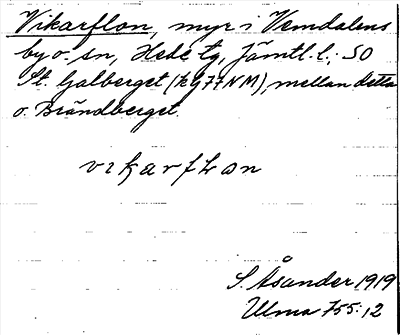 Vikarflon, myr i Vemdalens
by o. sn, Hede tg, Jämtl. l.; SO
St. Galberget (kg 77 NM), mellan detta
o. Brändberget.
vikarflon
S. Åsander 1919
Ulma 755:12